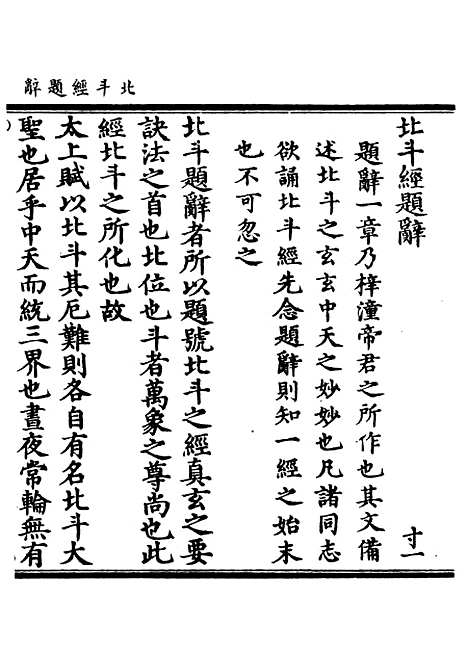 北斗經題辭
北斗經題辭 寸一
題辭一章乃梓潼帝君之所作也其文備
述北斗之玄玄中天之妙妙也凡諸同志
欲誦北斗經先念題辭則知一經之始末
也不可忽之
北斗題辭者所以題號北斗之經真玄之要
訣法之首也北位也斗者萬象之尊尚也此
經北斗之所化也故
太上賦以北斗其厄難則各自有名北斗大
聖也居乎中天而統三界也晝夜常輪無有